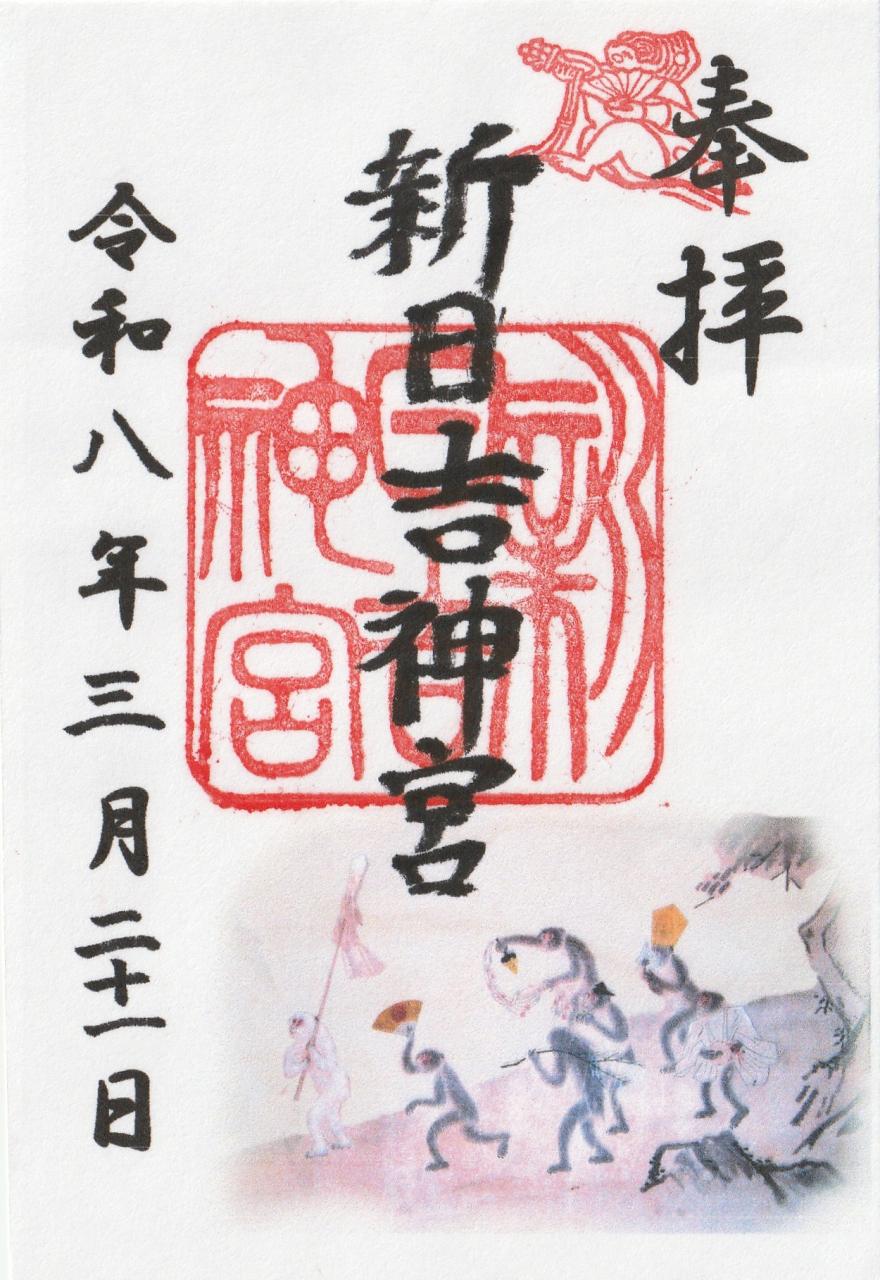 奉拝
新日吉神宮
新日吉神宮
令和八年三月二十一日